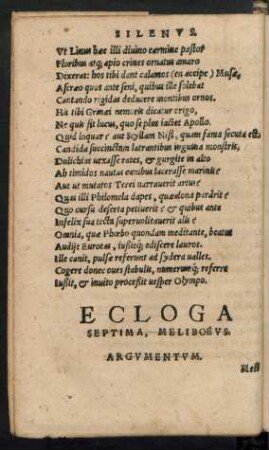 SILENVS.
Vt Linus hæc illi diuino carmine pastor
Floribus atq; apio crines ornatus amaro
Dixerat: hos tibi dant calamos (en accipe) Musæ,
Ascræo quos ante seni, quibus ille solebat
Cantando rigidas deducere montibus ornos.
His tibi Grinæi nemoris dicatur origo,
Ne quis sit lucus, quo se plus iactet Apollo.
Quid loquar? aut Scyllam Nisi, quam fama secuta est,
Candida succinctam latrantibus inguina monstris,
Dulichias vexasse rates, & gurgite in alto
Ah timidos nautas canibus lacerasse marinis?
Aut ut mutatos Terei narrauerit artus?
Quas illi Philomela dapes, quæ dona parârit?
Quo cursu deserta petiuerit? & quibus ante
Infelix sua tecta superuolitauerit alis?
Omnia, quæ Phœbo quondam meditante, beatus
Audijt Eurotas, iußitq; ediscere lauros.
Ille canit, pulsæ referunt ad sydera ualles.
Cogere donec oues stabulis, numerumq; referre
Iußit, & inuito proceßit uesper Olympo.
ECLOGA
SEPTIMA, MELIBOEVS.
ARGVMENTVM.
Meli